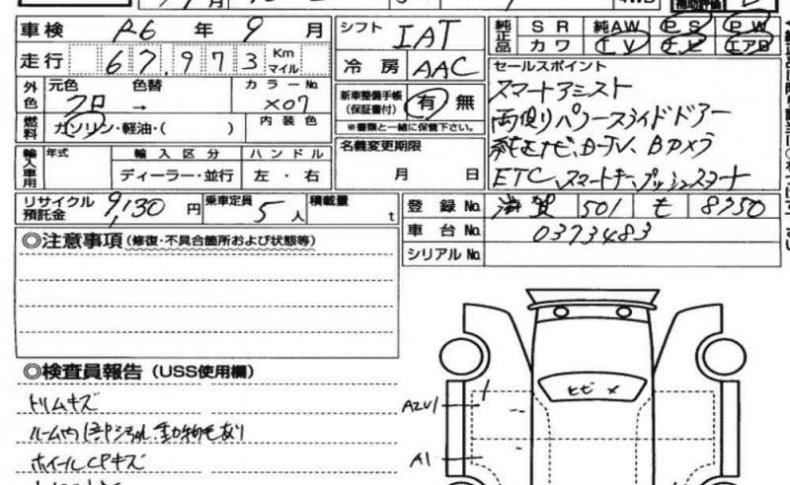 車検 R6 年 9 月
シフト IAT
純正品 SR 純AW PS PW
カワ TV ナビ エアB
走行 67,973 Km マイル
冷房 AAC
セールスポイント
スマートアシスト
両側パワースライドドアー
純正ナビ、D-TV、Bカメラ
ETC、スマートキー、プッシュスタート
外色 元色 クロ → 色替 カラーNo. X07
新車整備手帳(保証書付) 有 無
※書類と一緒に保管下さい。
燃料 ガソリン・軽油・( ) 内装色
名義変更期限
月 日
輸入車用 年式 輸入区分 ハンドル
ディーラー・並行 左・右
リサイクル預託金 9,130 円 乗車定員 5 人 積載量 t
登録No. 滋賀 501 も 8750
車台No. 0373483
シリアルNo.
◎注意事項 (修復・不具合箇所および状態等)
◎検査員報告 (USS使用欄)
トリムキズ
ルーム内 動物毛あり
ホイールCPキズ
ヒビ ×
AZU1
A1